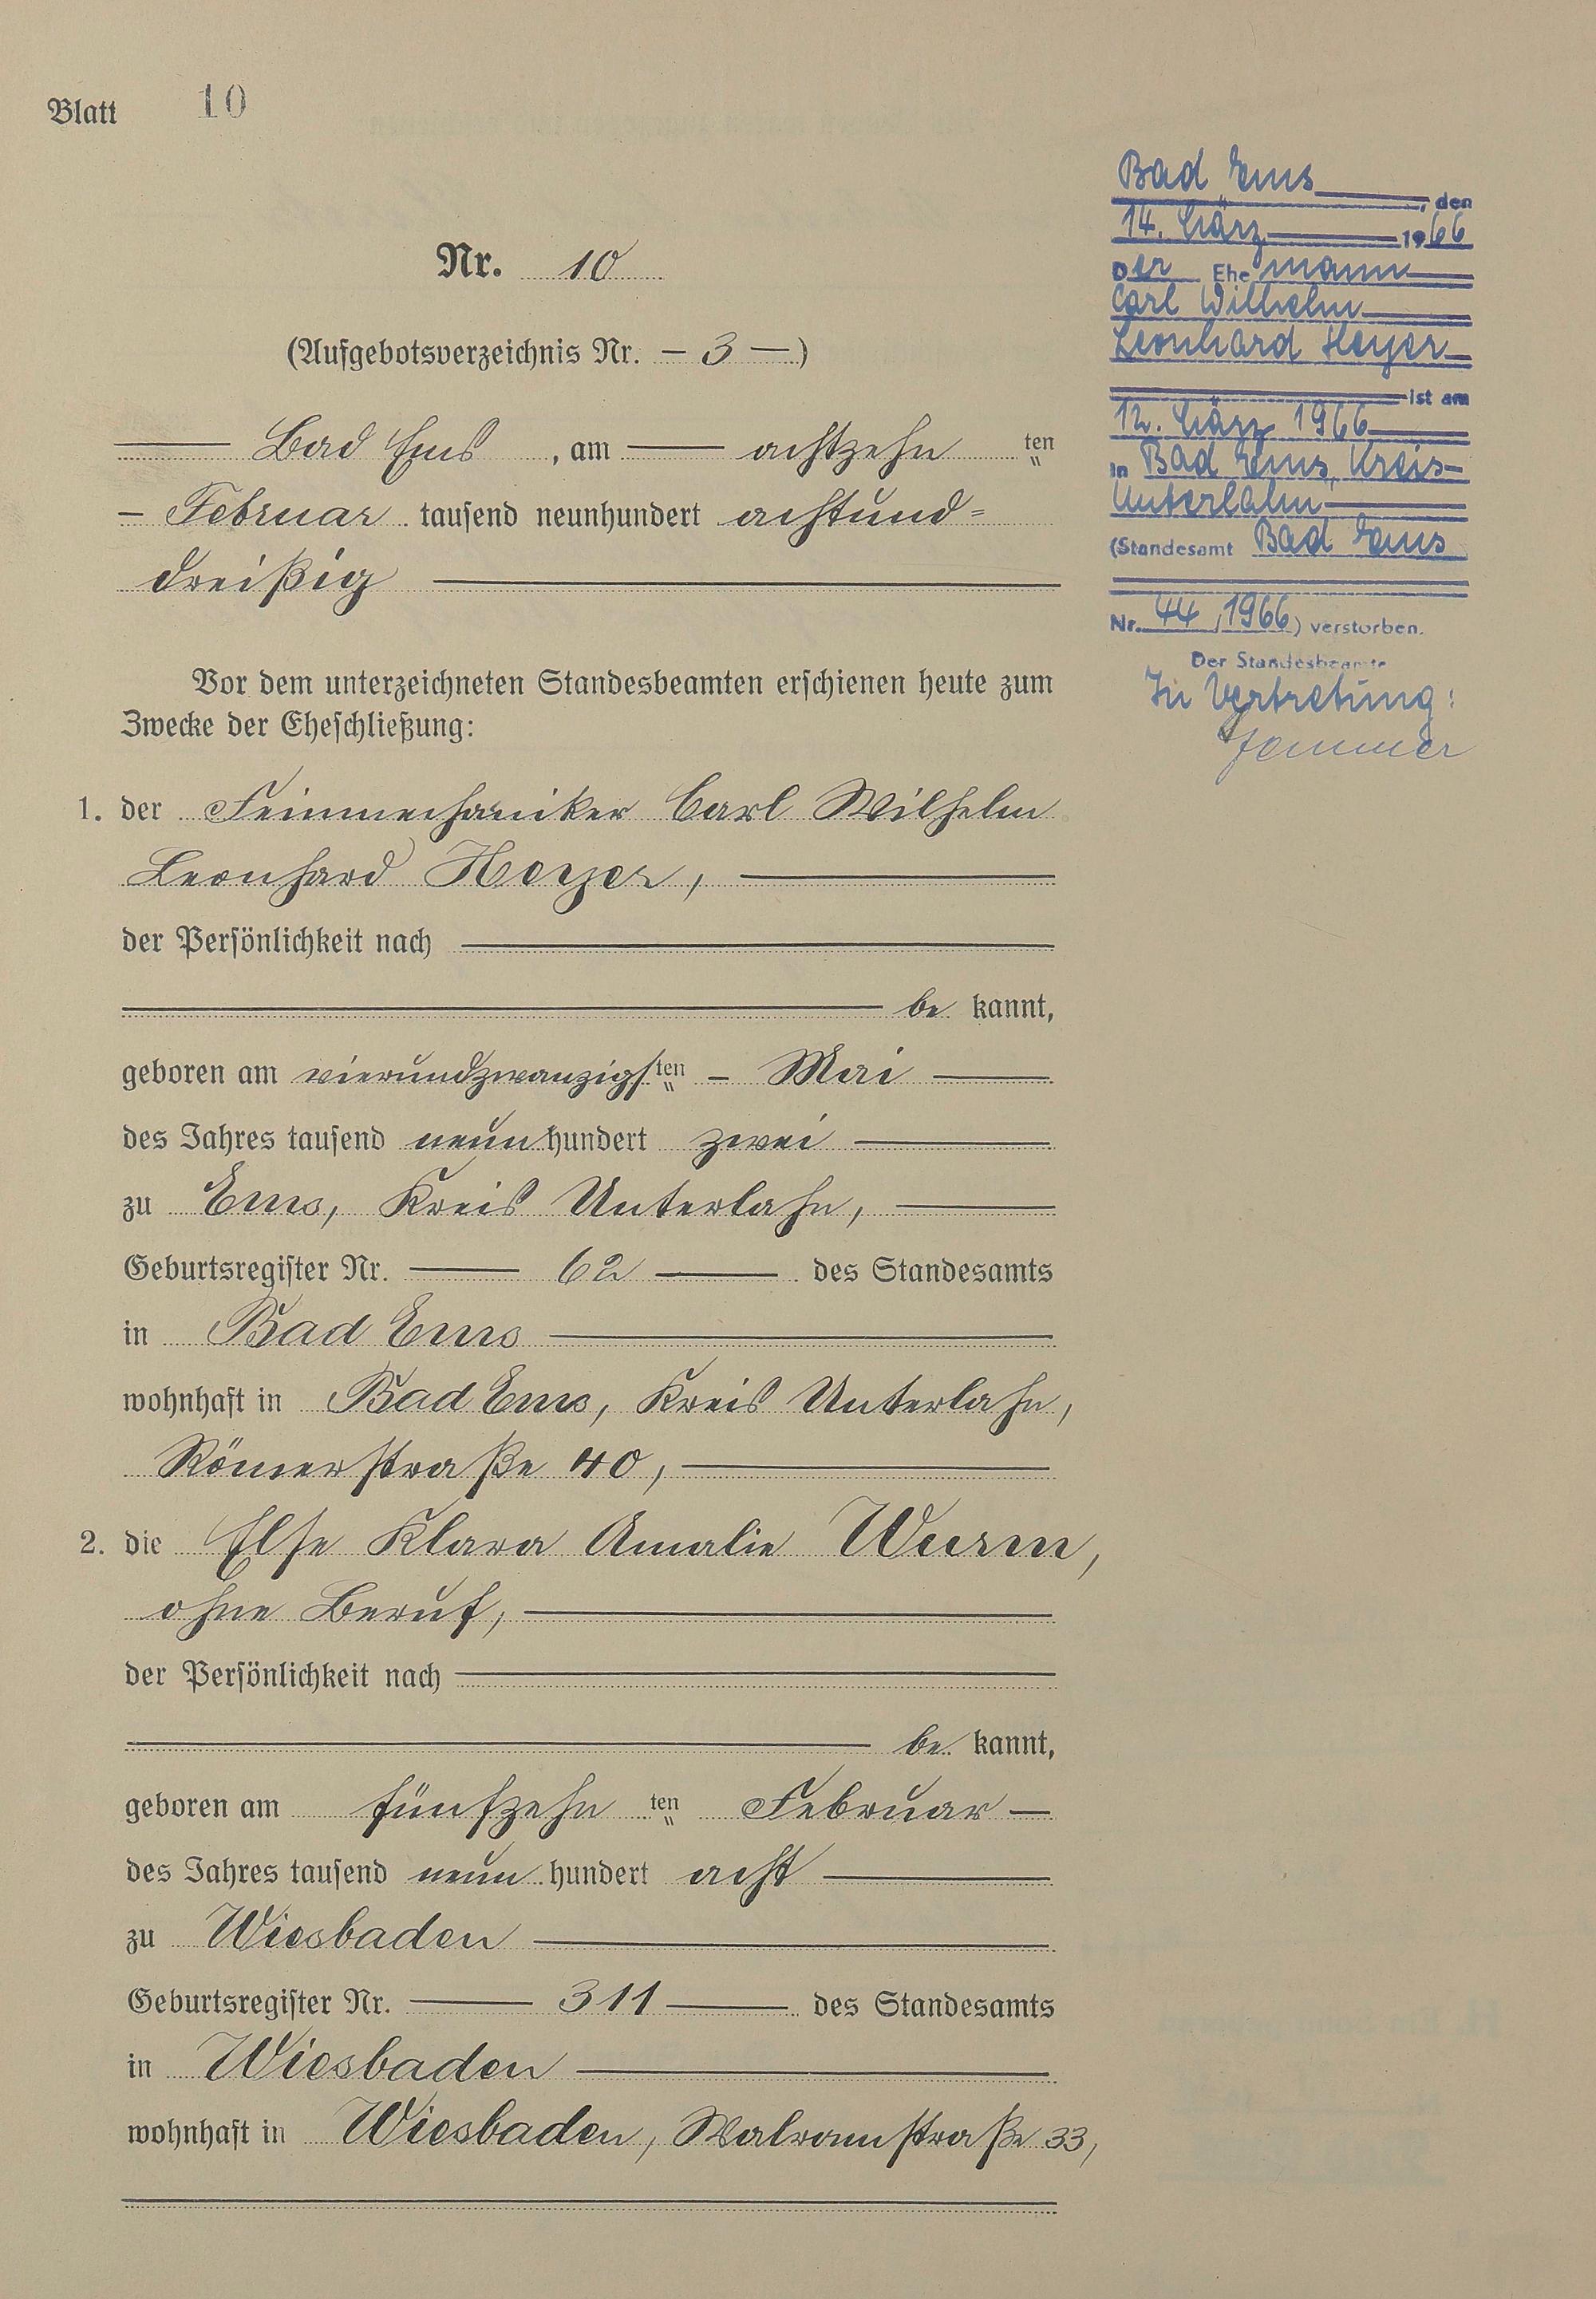 Blatt 10
Nr. 10
(Aufgebotsverzeichnis Nr. – 3 –)
Bad Ems, am achtzehn ten
– Februar tausend neunhundert achtund=
dreißig
Vor dem unterzeichneten Standesbeamten erschienen heute zum
Zwecke der Eheschließung:
1. der Feinmechaniker Carl Wilhelm
Leonhard Heyer,
der Persönlichkeit nach
be kannt,
geboren am vierundzwanzigsten – Mai
des Jahres tausend neun hundert zwei
zu Ems, Kreis Unterlahn,
Geburtsregister Nr. 62 des Standesamts
in Bad Ems
wohnhaft in Bad Ems, Kreis Unterlahn,
Römerstraße 40,
2. die Else Klara Amalie Wurm,
ohne Beruf,
der Persönlichkeit nach
be kannt,
geboren am fünfzehn ten Februar
des Jahres tausend neun hundert acht
zu Wiesbaden
Geburtsregister Nr. 311 des Standesamts
in Wiesbaden
wohnhaft in Wiesbaden, Walramstraße 33,
Bad Ems, den
14. März 1966
Der Ehemann
Carl Wilhelm
Leonhard Heyer
ist am
12. März 1966
in Bad Ems, Kreis
Unterlahn
(Standesamt Bad Ems
Nr. 44/1966) verstorben.
Der Standesbeamte
In Vertretung: